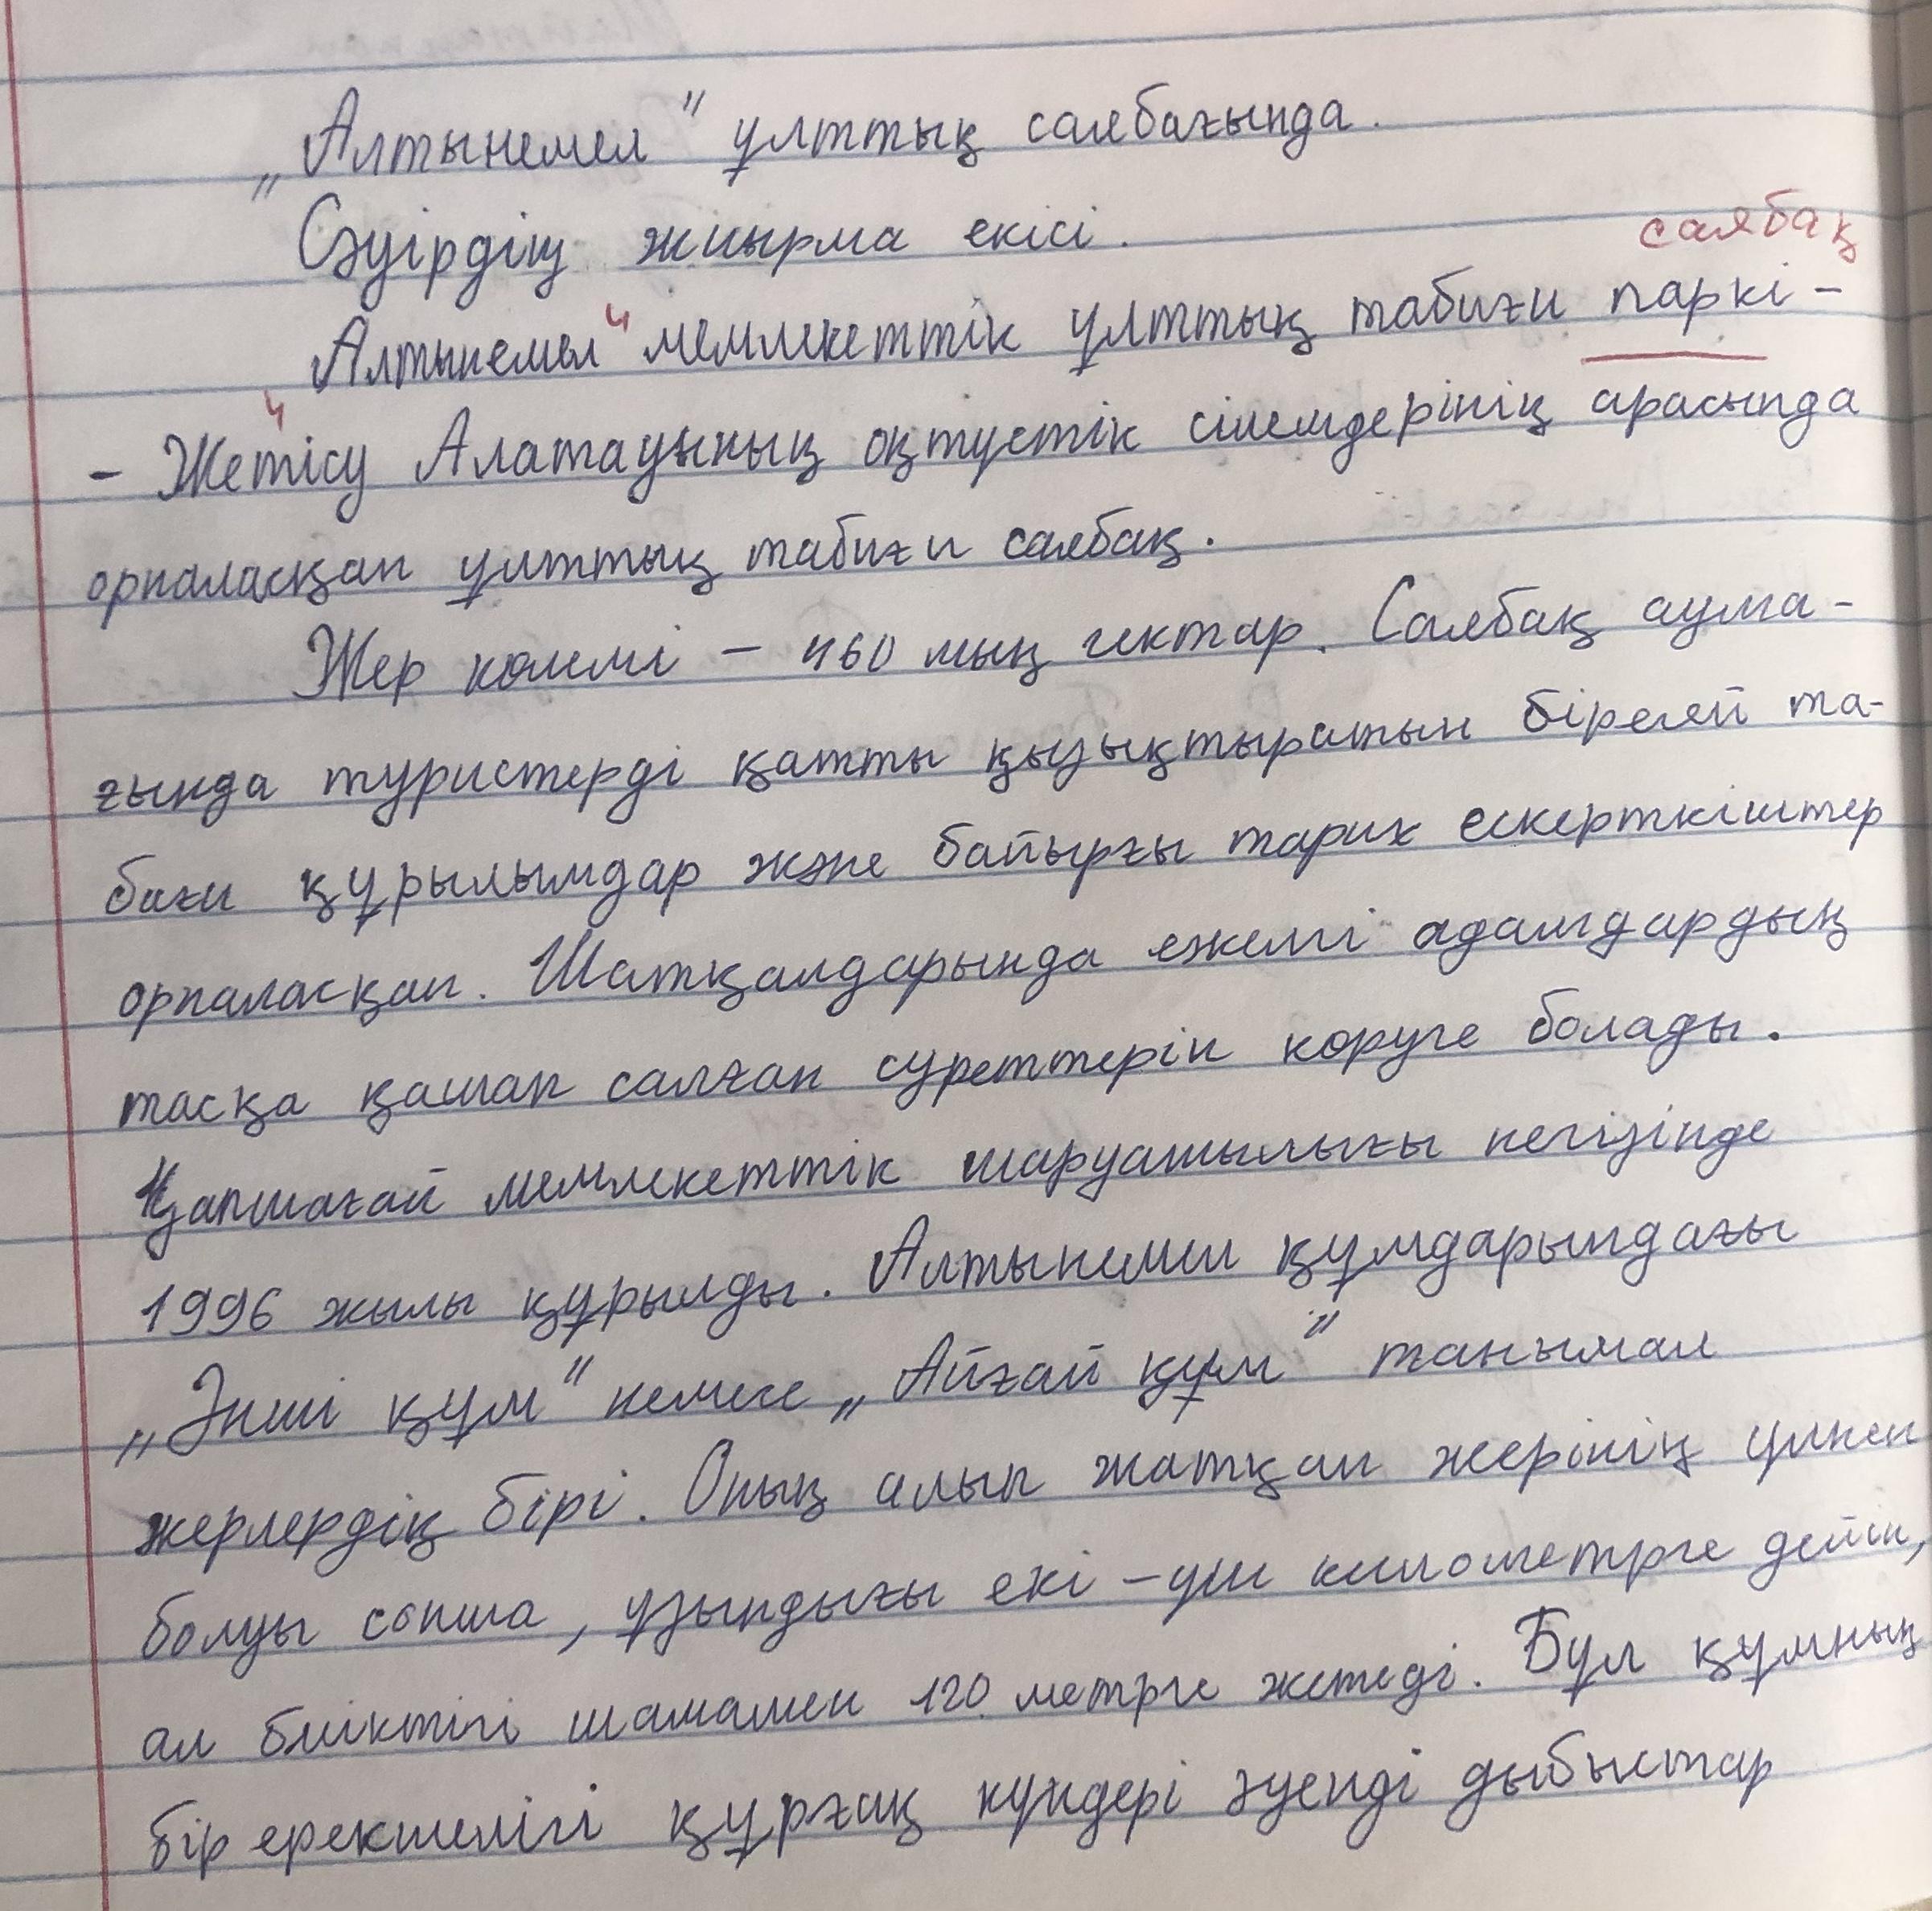 „Алтынемел" ұлттық саябағында.
Сәуірдің жиырма екісі.
саябақ
Алтынемел" мемлекеттік ұлттық табиғи паркі -
- Жетісу Алатауының оңтүстік сілемдерінің арасында
орналасқан ұлттық табиғи саябақ.
Жер көлемі - 460 мың гектар. Саябақ аума-
ғында туристерді қатты қызықтыратын бірегей та-
биғи құрылымдар және байырғы тарих ескерткіштер
орналасқан. Шатқалдарында ежелгі адамдардың
тасқа қашап салған суреттерін көруге болады.
Қапшағай мемлекеттік шаруашылығы негізінде
1996 жылы құрылды. Алтынемел құмдарындағы
„Әнші құм" немесе „Айғай құм" танымал
жерлердің бірі. Оның алып жатқан жерінің үлкен
болуы сонша, ұзындығы екі - үш километрге дейін,
ал биіктігі шамамен 120 метрге жетеді. Бұл құмның
бір ерекшелігі құрғақ күндері әуенді дыбыстар